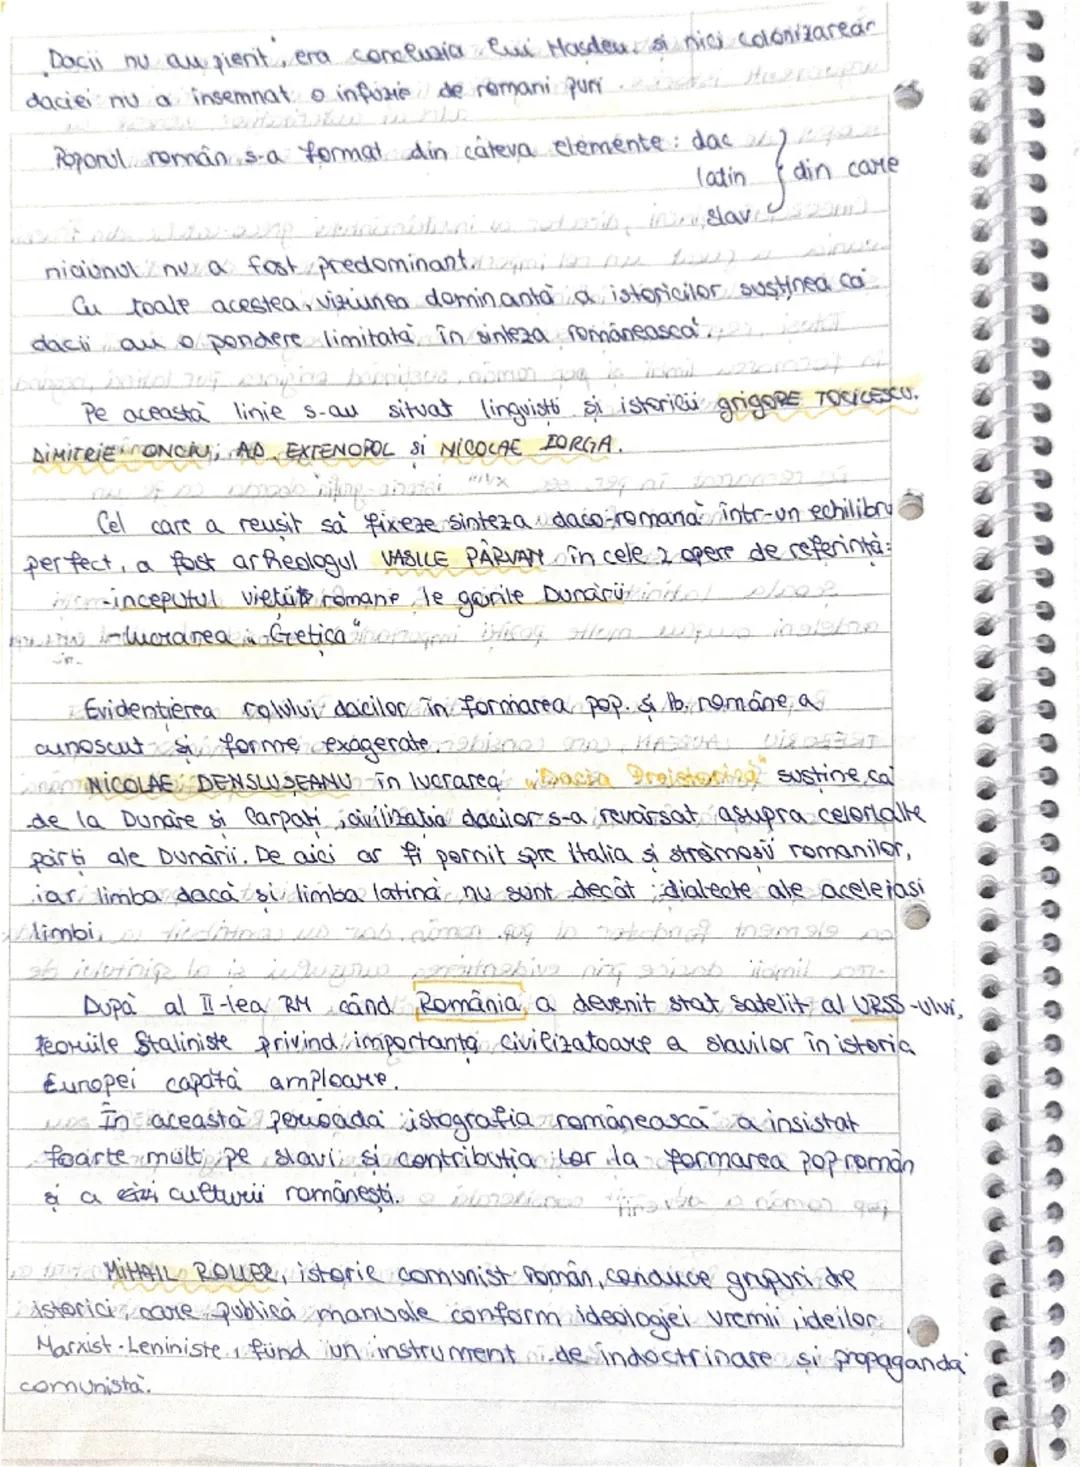 „Dacii nu au pierit", era concluzia lui Hasdeu. și nici colonizarear
daciei nu a însemnat o infuzie de romani puri.
Poporul român s-a format din câteva elemente: dac
latin } din care
slav
niciunul nu a fost predominant.
Cu toate acestea, viziunea dominantă a istoricilor susținea că
dacii au o pondere limitată în sinteza românească.
Pe această linie s-au situat lingviști și istorici grigORE TOCILESCU.
DIMITRIE ONCIU, AD EXTENOPOL și NICOLAE IORGA.
Cel care a reușit să fixeze sinteza daco-romană într-un echilibru
perfect, a fost arheologul VASILE PÂRVAN în cele 2 opere de referință:
-începutul vieții romane le gurile Dunării
-lucrarea „Getica"
Evidențierea rolului dacilor în formarea pop. și lb. române, a
cunoscut și forme exagerate.
NICOLAE DENSLUȘEANU în lucrarea „Dacia Preistorică" susține că
de la Dunăre și Carpați, civilizația dacilor s-a revărsat asupra celorlalte
părți ale Dunării. De aici ar fi pornit spre Italia și strămoșii romanilor,
iar limba dacă și limba latină nu sunt decât dialecte ale aceleiași
limbi.
După al II-lea RM când România a devenit stat satelit al URSS-ului,
teoriile Staliniste privind importanța civilizatoare a slavilor în istoria
Europei capătă amploare.
În această perioadă istografia românească a insistat
foarte mult pe slavi și contribuția lor la formarea pop român
și a culturii românești.
MIHAIL ROLLER, istoric comunist român, conduce grupuri de
istorici, care publică manuale conform ideologiei vremii, ideilor
Marxist-Leniniste, fiind un instrument de îndoctrinare și propagandă
comunistă.